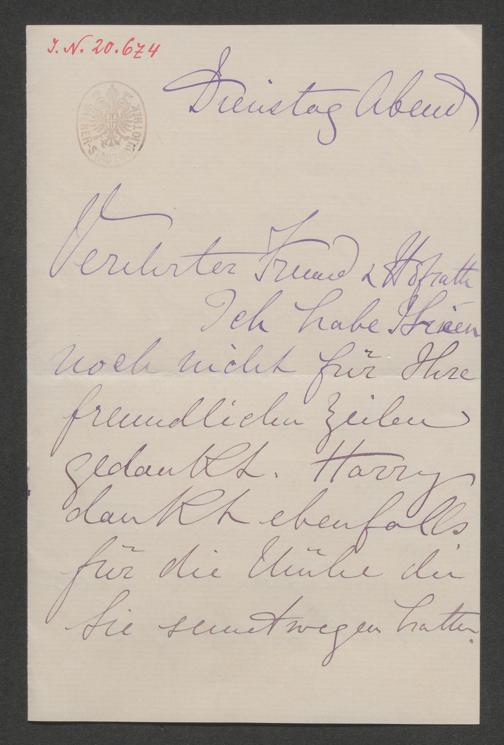 J. N. 20.674
Dienstag Abend
WIENER-STADTBIBLIOTHEK
Verehrter Freund & Hofrath
Ich habe Ihnen
noch nicht für Ihre
freundlichen Zeilen
gedankt. Harry
dankt ebenfalls
für die Mühe die
Sie seinetwegen hatten.